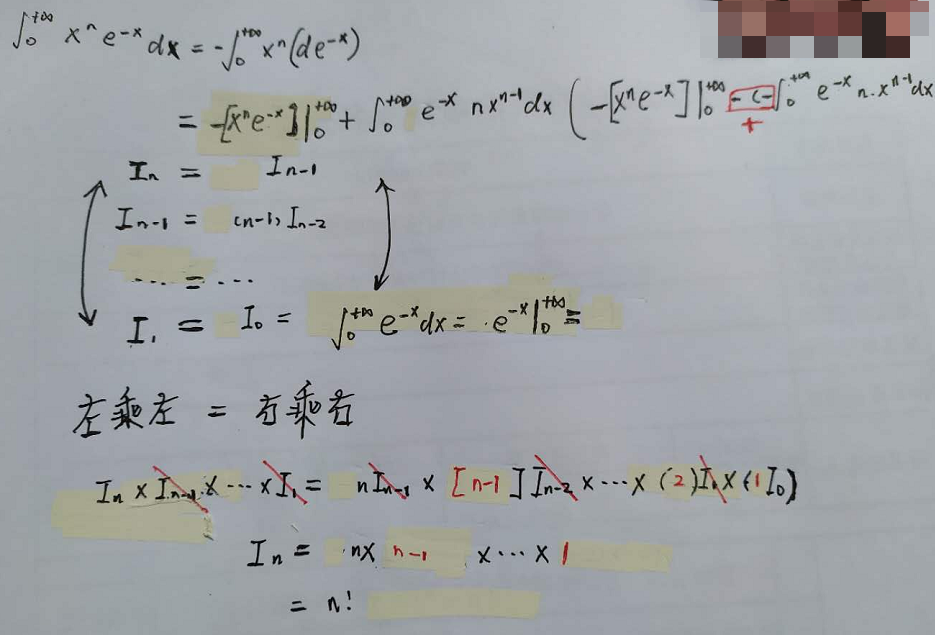 ∫₀^{+∞} xⁿ e^{-x} dx = -∫₀^{+∞} xⁿ(de^{-x})
= -[xⁿe^{-x}]|₀^{+∞} + ∫₀^{+∞} e^{-x} nx^{n-1}dx ( -[xⁿe^{-x}]|₀^{+∞} -(-∫₀^{+∞} e^{-x} n·x^{n-1}dx
+
Iₙ = Iₙ₋₁
Iₙ₋₁ = (n-1) Iₙ₋₂
... = ...
I₁ = I₀ = ∫₀^{+∞} e^{-x}dx = ·e^{-x}|₀^{+∞} =
左乘左 = 右乘右
Iₙ × Iₙ₋₁ × ··· × I₁ = nIₙ₋₁ × [n-1] Iₙ₋₂ × ··· × (2)I₁ × (1 I₀)
Iₙ = ·n× n-1 × ··· × 1
= n!